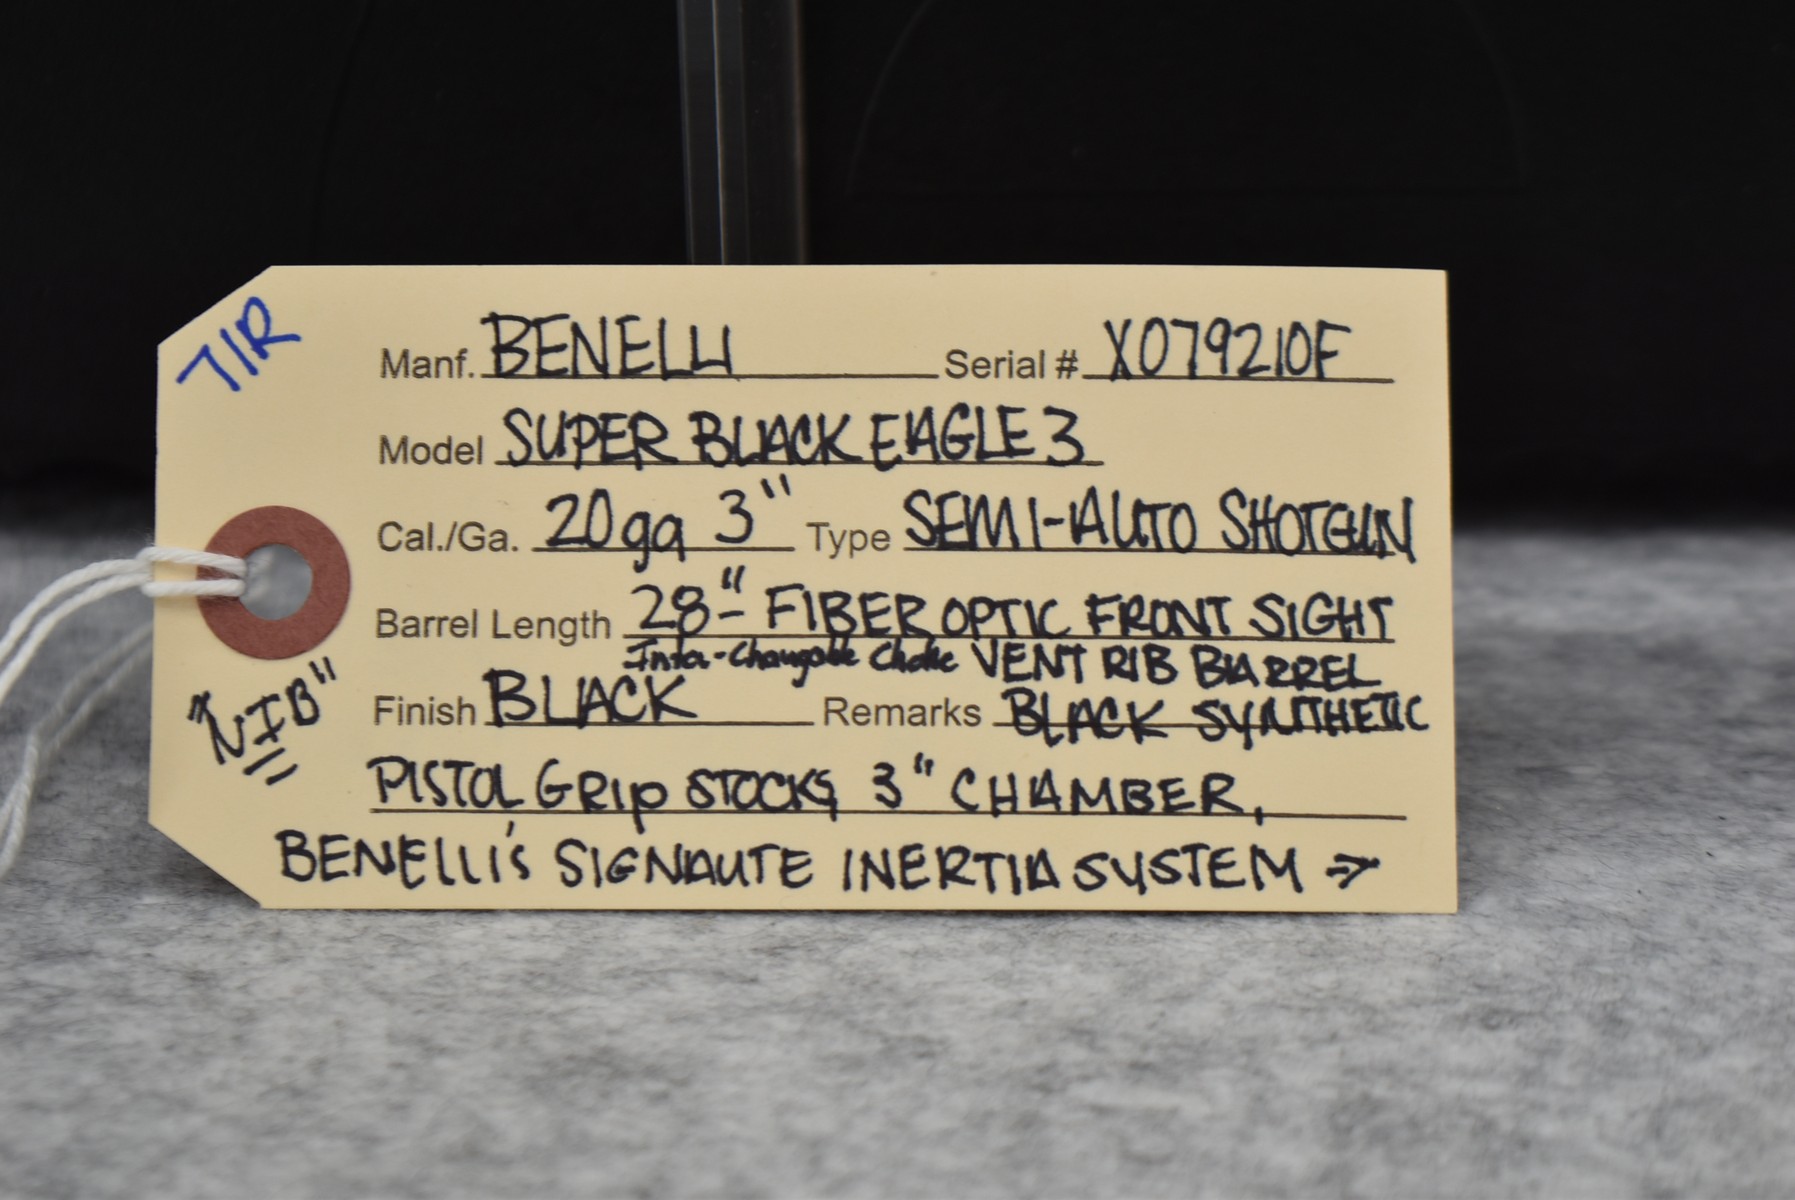 71R
Manf. BENELLI Serial # X079210F
Model SUPER BLACK EAGLE 3
Cal./Ga. 20ga 3" Type SEMI-AUTO SHOTGUN
Barrel Length 28" - FIBER OPTIC FRONT SIGHT
Inter-Changable Choke VENT RIB BARREL
Finish BLACK Remarks BLACK SYNTHETIC
"NIB"
PISTOL GRIP STOCKS 3" CHAMBER,
BENELLI'S SIGNAUTE INERTIA SYSTEM →